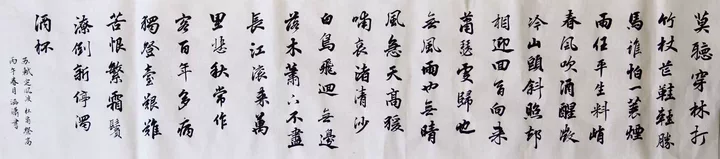 莫聽穿林打
竹杖芒鞋輕勝
馬誰怕一蓑煙
雨任平生料峭
春風吹酒醒微
冷山頭斜照却
相迎回首向來
蕭瑟處歸也
無風雨也無晴
風急天高猿
嘯哀渚清沙
白鳥飛迴無邊
落木蕭〻下不盡
長江滾來萬
里悲秋常作
客百年多病
獨登臺艱難
苦恨繁霜鬢
潦倒新停濁
酒杯
苏軾定風波杜甫登高
丙午春月書